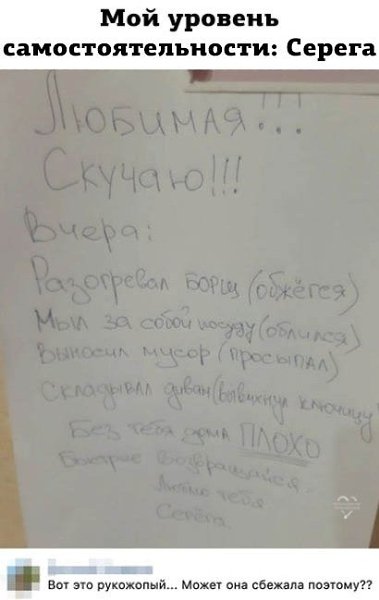 Мой уровень
самостоятельности: Серега
Любимая!!!
Скучаю!!!
Вчера:
Разогревал борщ (обжёгся)
Мыл за собой посуду (облился)
Выносил мусор (просыпал)
Складывал диван (вывихнул ключицу
Без тебя дома ПЛОХО
Быстрее возвращайся.
Люблю тебя
Серёга.
Вот это рукожопый... Может она сбежала поэтому??